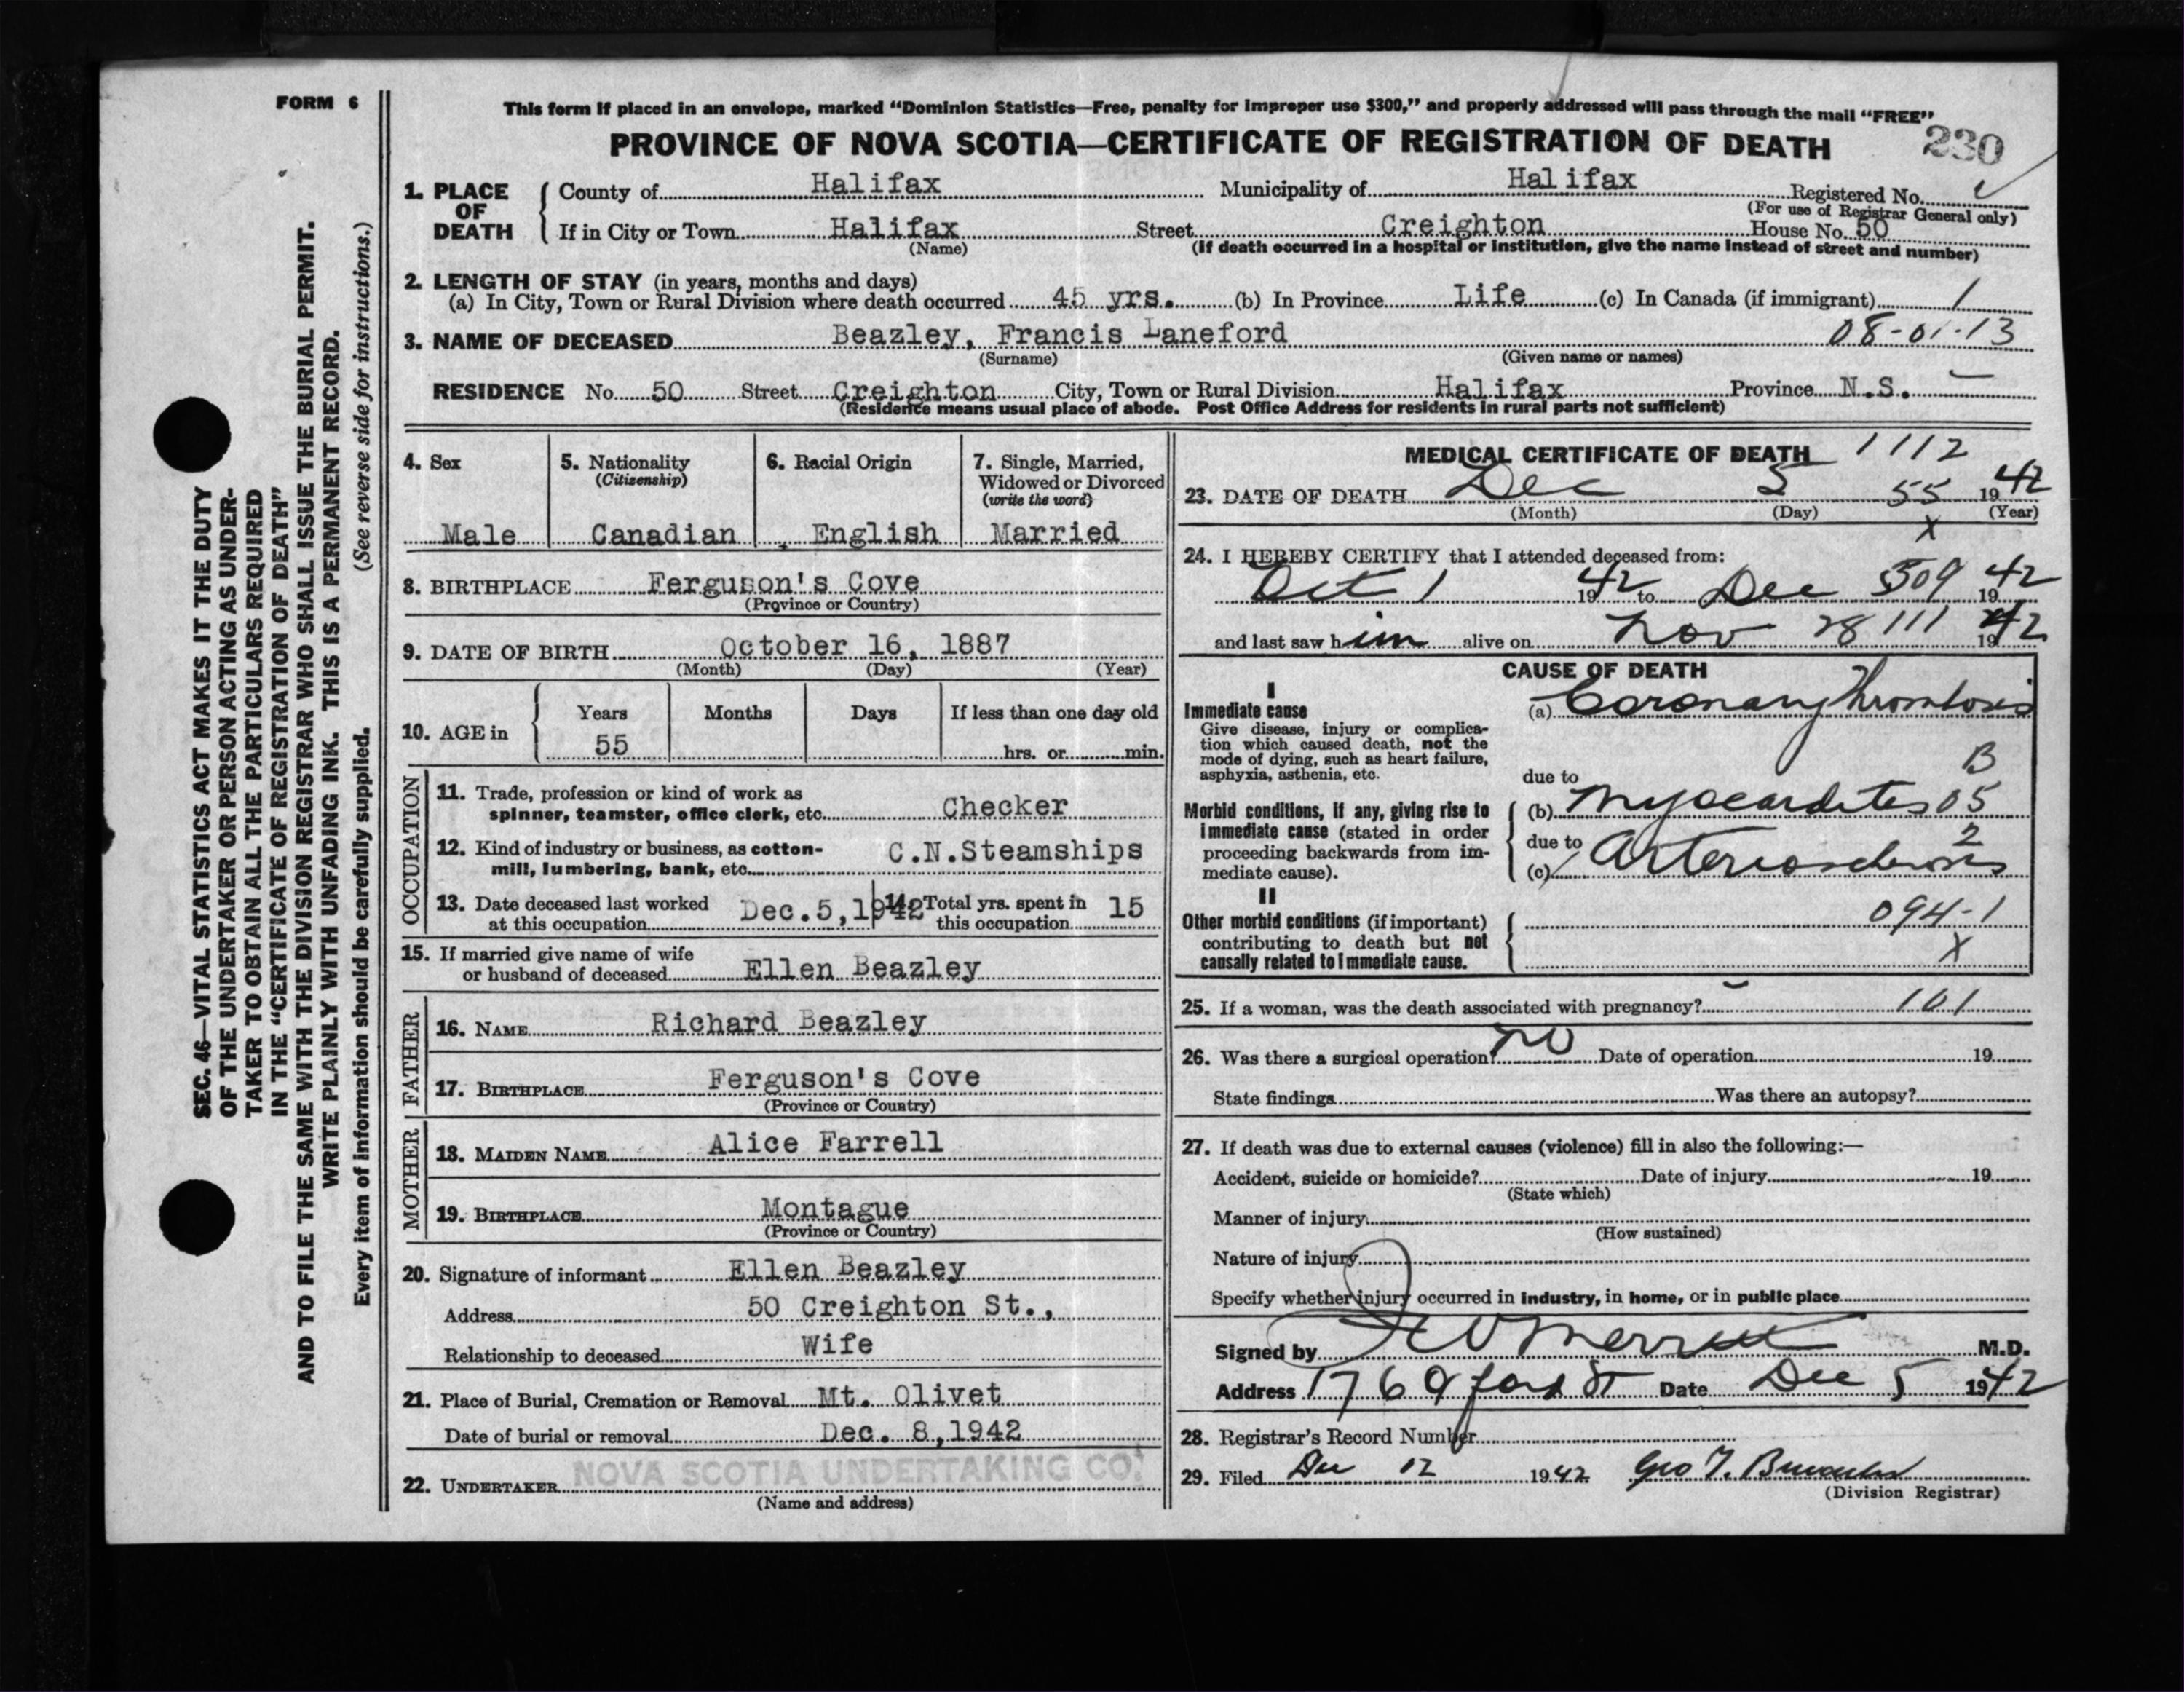 FORM 6
This form if placed in an envelope, marked “Dominion Statistics—Free, penalty for improper use $300,” and properly addressed will pass through the mail “FREE”
PROVINCE OF NOVA SCOTIA—CERTIFICATE OF REGISTRATION OF DEATH
230
1. PLACE OF DEATH
County of Halifax Municipality of Halifax Registered No.
(For use of Registrar General only)
If in City or Town Halifax Street Creighton House No. 50
(Name) (If death occurred in a hospital or institution, give the name instead of street and number)
2. LENGTH OF STAY (in years, months and days)
(a) In City, Town or Rural Division where death occurred 45 yrs. (b) In Province Life (c) In Canada (if immigrant) /
3. NAME OF DECEASED Beazley, Francis Laneford 08-01-13
(Surname) (Given name or names)
RESIDENCE No. 50 Street Creighton City, Town or Rural Division Halifax Province N.S.
(Residence means usual place of abode. Post Office Address for residents in rural parts not sufficient)
4. Sex
Male
5. Nationality
(Citizenship)
Canadian
6. Racial Origin
English
7. Single, Married,
Widowed or Divorced
(write the word)
Married
8. BIRTHPLACE Ferguson's Cove
(Province or Country)
9. DATE OF BIRTH October 16, 1887
(Month) (Day) (Year)
10. AGE in
Years Months Days If less than one day old
55 hrs. or min.
OCCUPATION
11. Trade, profession or kind of work as
spinner, teamster, office clerk, etc. Checker
12. Kind of industry or business, as cotton-
mill, lumbering, bank, etc. C.N.Steamships
13. Date deceased last worked
at this occupation Dec.5,1942
14. Total yrs. spent in
this occupation 15
15. If married give name of wife
or husband of deceased Ellen Beazley
FATHER
16. NAME Richard Beazley
17. BIRTHPLACE Ferguson's Cove
(Province or Country)
MOTHER
18. MAIDEN NAME Alice Farrell
19. BIRTHPLACE Montague
(Province or Country)
20. Signature of informant Ellen Beazley
Address 50 Creighton St.,
Relationship to deceased Wife
21. Place of Burial, Cremation or Removal Mt. Olivet
Date of burial or removal Dec. 8,1942
22. UNDERTAKER NOVA SCOTIA UNDERTAKING CO.
(Name and address)
MEDICAL CERTIFICATE OF DEATH 1112
23. DATE OF DEATH Dec 5 55 1942
(Month) (Day) (Year)
X
24. I HEREBY CERTIFY that I attended deceased from:
Oct 1 1942 to Dec 509 1942
and last saw him alive on Nov 28 111 1942
CAUSE OF DEATH
I
Immediate cause
Give disease, injury or complica-
tion which caused death, not the
mode of dying, such as heart failure,
asphyxia, asthenia, etc.
(a) Coronary Thrombosis
B
due to
Morbid conditions, if any, giving rise to
immediate cause (stated in order
proceeding backwards from im-
mediate cause).
(b) Myocardites 05
due to 2
(c) Arteriosclerosis
II
Other morbid conditions (if important)
contributing to death but not
causally related to immediate cause.
094-1
X
25. If a woman, was the death associated with pregnancy? 101
26. Was there a surgical operation? no Date of operation 19
State findings Was there an autopsy?
27. If death was due to external causes (violence) fill in also the following:—
Accident, suicide or homicide? Date of injury 19
(State which)
Manner of injury
(How sustained)
Nature of injury
Specify whether injury occurred in industry, in home, or in public place
Signed by M.D.
Address Date Dec 5 1942
28. Registrar's Record Number
29. Filed Dec 12 1942 Geo
(Division Registrar)
SEC. 46—VITAL STATISTICS ACT MAKES IT THE DUTY
OF THE UNDERTAKER OR PERSON ACTING AS UNDER-
TAKER TO OBTAIN ALL THE PARTICULARS REQUIRED
IN THE “CERTIFICATE OF REGISTRATION OF DEATH”
AND TO FILE THE SAME WITH THE DIVISION REGISTRAR WHO SHALL ISSUE THE BURIAL PERMIT.
WRITE PLAINLY WITH UNFADING INK. THIS IS A PERMANENT RECORD.
Every item of information should be carefully supplied. (See reverse side for instructions.)